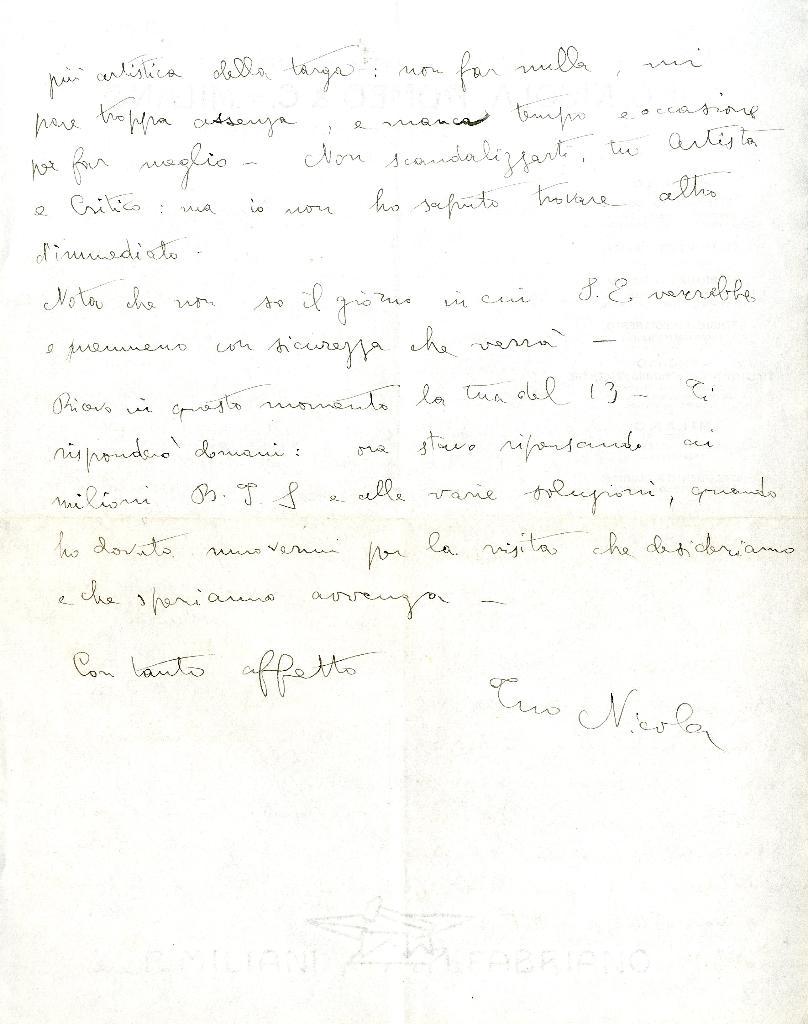 più artistica della targa: non far nulla, mi
pare troppa assenza, e manca tempo e occasione
per far meglio - Non scandalizzarti, tu Artista
e Critico: ma io non ho saputo trovare altro
d'immediato.
Nota che non so il giorno in cui S. E. verrebbe
e nemmeno con sicurezza che verrà -
Ricevo in questo momento la tua del 13 - Ti
risponderò domani: ora stavo ripensando ai
milioni B. T. S e alle varie soluzioni, quando
ho dovuto muovermi per la visita che desideriamo
e che speriamo avvenga -
Con tanto affetto
Tuo Nicola
P. MILIANI FABRIANO